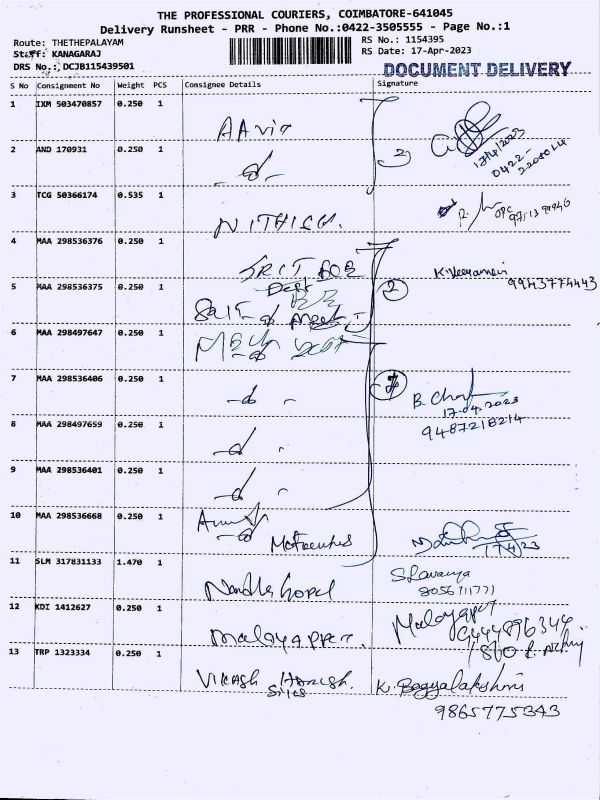 THE PROFESSIONAL COURIERS, COIMBATORE-641045
Delivery Runsheet - PRR - Phone No.:0422-3505555 - Page No.:1
Route: THETHEPALAYAM
RS No.: 1154395
Staff: KANAGARAJ
RS Date: 17-Apr-2023
DRS No.: DCJB115439501
DOCUMENT DELIVERY
S No Consignment No Weight PCS Consignee Details Signature
1 IXM 503470857 0.250 1
17/4/2023
0422-
2 AND 170931 0.250 1
3 TCG 50366174 0.535 1 NITHISH.
4 MAA 298536376 0.250 1
K. Veeyamani
9943774443
5 MAA 298536375 0.250 1 Dept 2
6 MAA 298497647 0.250 1
7 MAA 298536406 0.250 1
17-04-2023
9487218214
8 MAA 298497659 0.250 1
9 MAA 298536401 0.250 1
10 MAA 298536668 0.250 1
17/4/23
11 SLM 317831133 1.470 1 Nandha Gopal
S. Lavanya
8056711771
12 KDI 1412627 0.250 1 Malayappan.
13 TRP 1323334 0.250 1 Vikash Harish.
K. Bagyalakshmi
9865775343